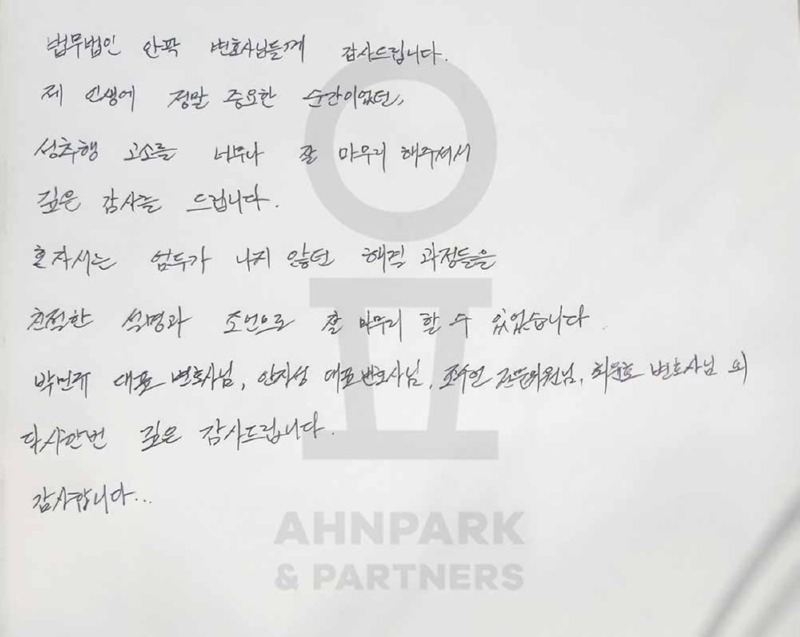 법무법인 안팍 변호사님들께 감사드립니다.
제 인생에 정말 중요한 순간이었던,
성추행 고소를 너무나 잘 마무리 해주셔서
깊은 감사를 드립니다.
혼자서는 엄두가 나지 않던 해결 과정들을
친절한 설명과 조언으로 잘 마무리 할 수 있었습니다.
대표 변호사님, 안지성 대표변호사님, 전문위원님, 변호사님 외
다시한번 깊은 감사드립니다.
감사합니다...
AHNPARK
& PARTNERS